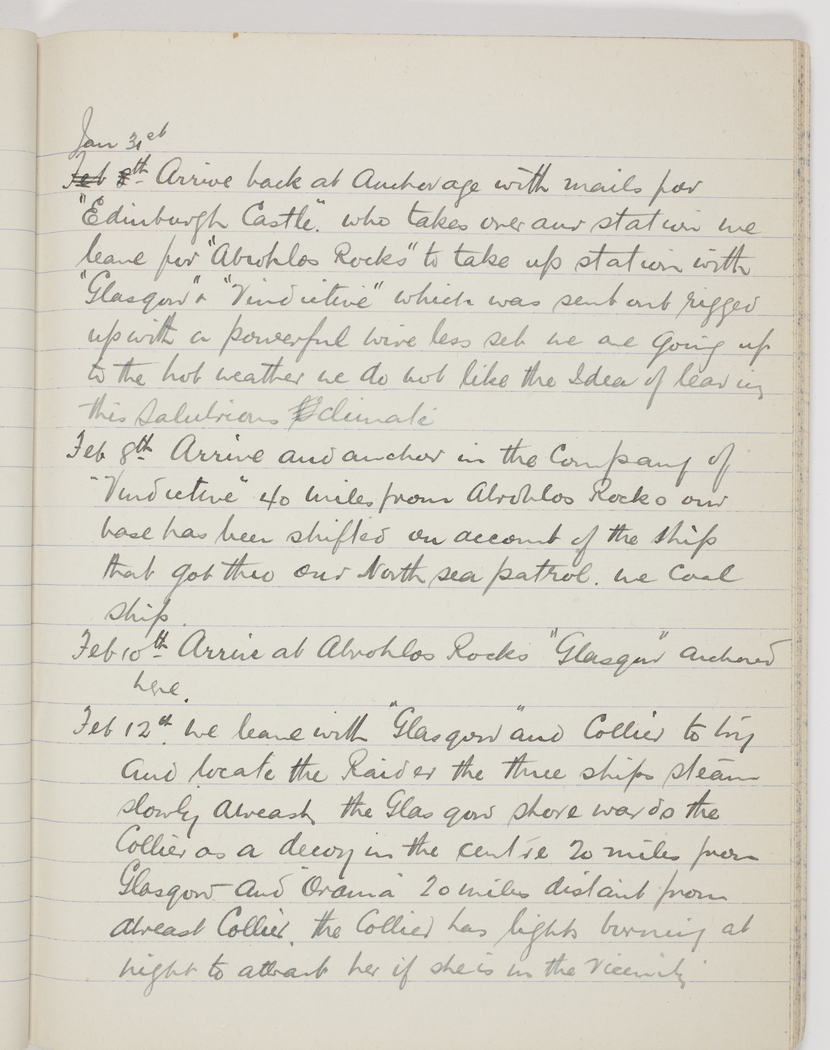 Jan 31st
Feb 8th Arrive back at Anchorage with mails for
"Edinburgh Castle". who takes over our station we
leave for "Abrohlos Rocks" to take up station with
"Glasgow" & "Vindictive" which was sent out rigged
up with a powerful wire less set we are Going up
to the hot weather we do not like the Idea of leaving
this salubrious climate
Feb 8th Arrive and anchor in the Company of
"Vindictive" 40 miles from Abrohlos Rocks our
base has been shifted on account of the ship
that got thro our North sea patrol. we Coal
ship.
Feb 10th Arrive at Abrohlos Rocks "Glasgow" anchored
here.
Feb 12th we leave with "Glasgow" and Collier to try
and locate the Raider the three ships steam
slowly abreast, the Glasgow shore wards the
Collier as a decoy in the centre 20 miles from
Glasgow and "Orama" 20 miles distant from
abreast Collier. the Collier has lights burning at
night to attract her if she is in the Vicinity